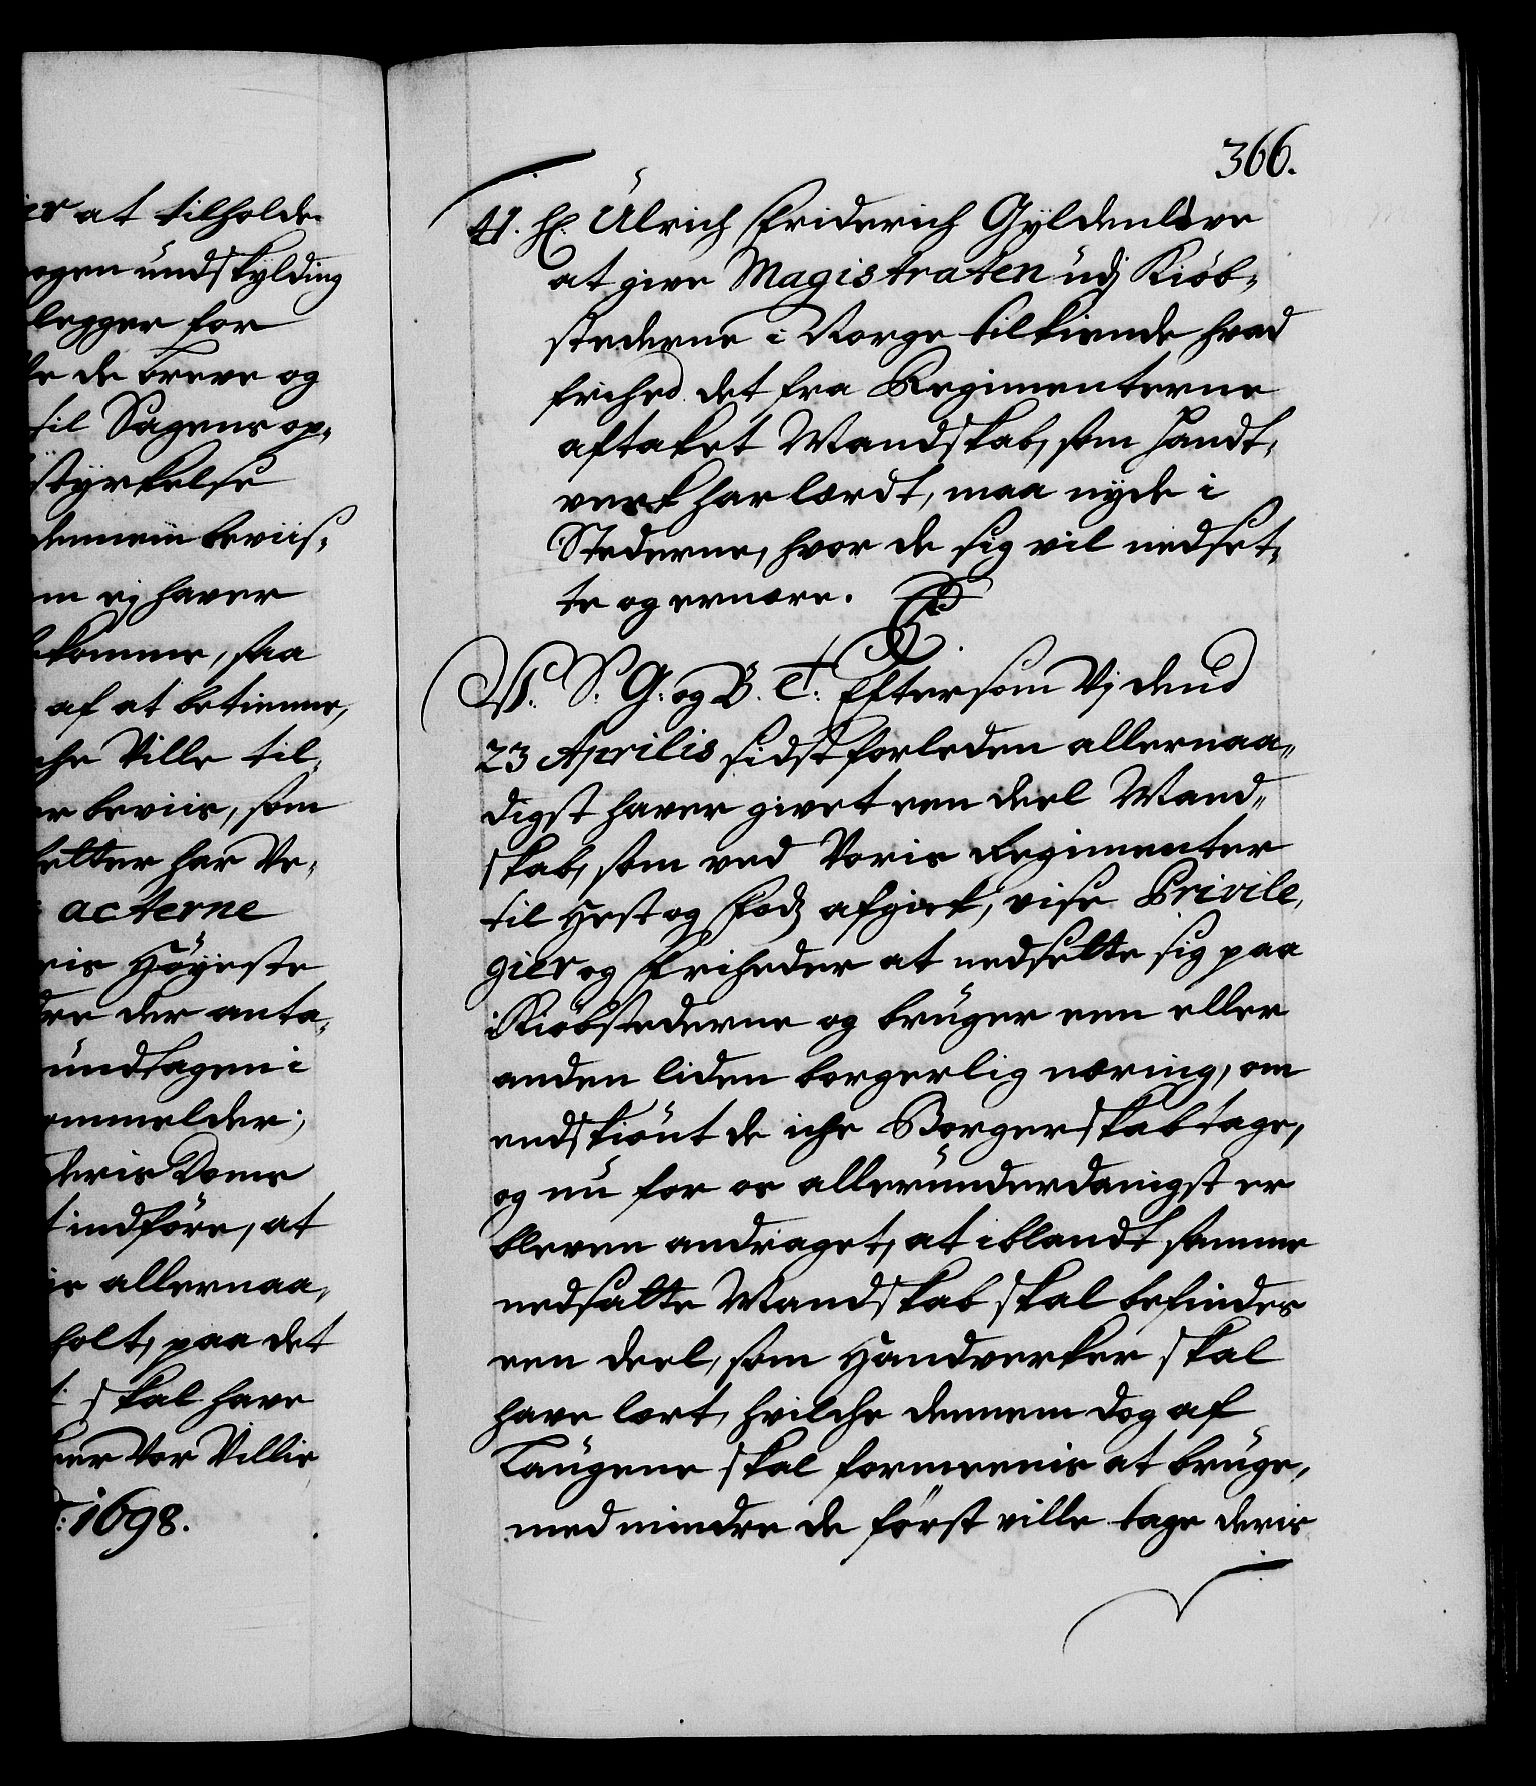 er at tilholde
ogen undskylding
legger for
de breve og
til Sagens op,
styrkelse
dennem beviis,
m ej haver
komme, saa
af at betienne,
che Ville til,
er beviis, som
fetter har Ve,
acterne
ris Høyeste
der anta,
undtagen i
ommelder;
deris Dome
indføre, at
is allernaa,
holt, paa det
skal have
Vor Villie
1698.
366.
H. Ulrich Friderich Gyldenløve
at give Magistraten udj Kiøb,
stederne i Norge tilkiende hvad
frihed det fra Regimenterne
aftaket Mandskab, som Handt,
verk har lærdt, maa nyde i
Stederne, hvor de sig vil nedset,
te og ernære.
V. S. G. og B. T. Eftersom Vj dend
23 Aprilis sidstforleden allernaa,
digst haver givet een deel Mand,
skab, som ved Voris Regimenter
til Hest og Fods afgiek, visse Privile,
gier og Friheder at nedsette sig paa
Kiøbstederne og bruger een eller
anden liden borgerlig næring, om
endskiønt de iche Borgerskab tage,
og nu for os allerunderdanigst er
bleven andraget, at iblandt samme
nedsatte Mandskab skal befindes
een deel, som Handverker skal
have lært, hvilche dennem dog af
Laugene skal formeenis at bruge,
med mindre de først ville tage deris